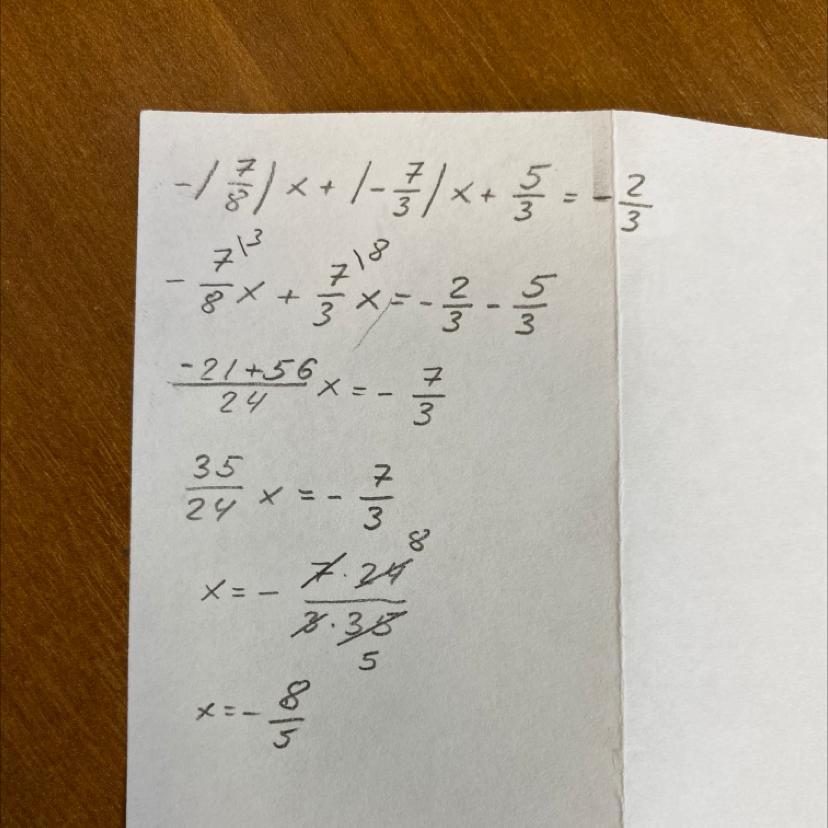 -|7/8|x + |-7/3|x + 5/3 = -2/3
-7/8\3 x + 7/3\8 x = -2/3 - 5/3
-21+56/24 x = -7/3
35/24 x = -7/3
x = - 7·24 8/3·35 5
x = -8/5